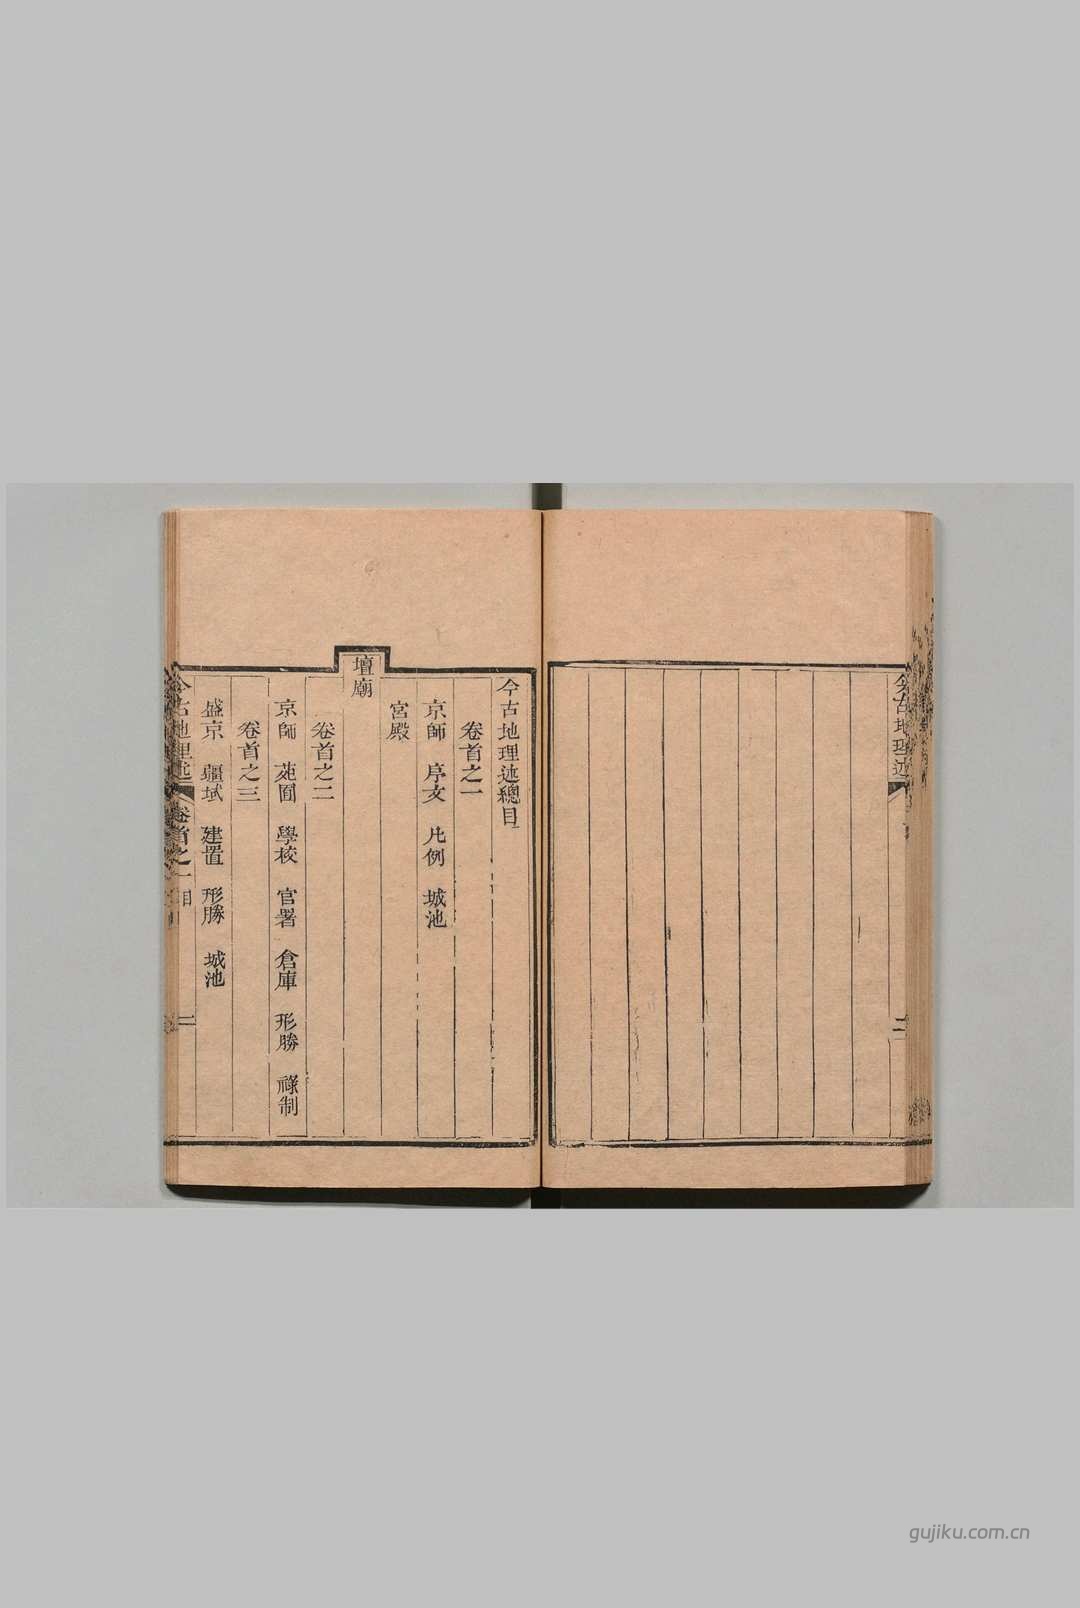 今古地理述
二
今古地理述總目
卷首之一
京師 序文 凡例 城池
宮殿
壇廟
卷首之二
京師 苑囿 學校 官署 倉庫 形勝 祿制
卷首之三
盛京 疆域 建置 形勝 城池
今古地理述 卷首之一 目
二
gujiku.com.cn